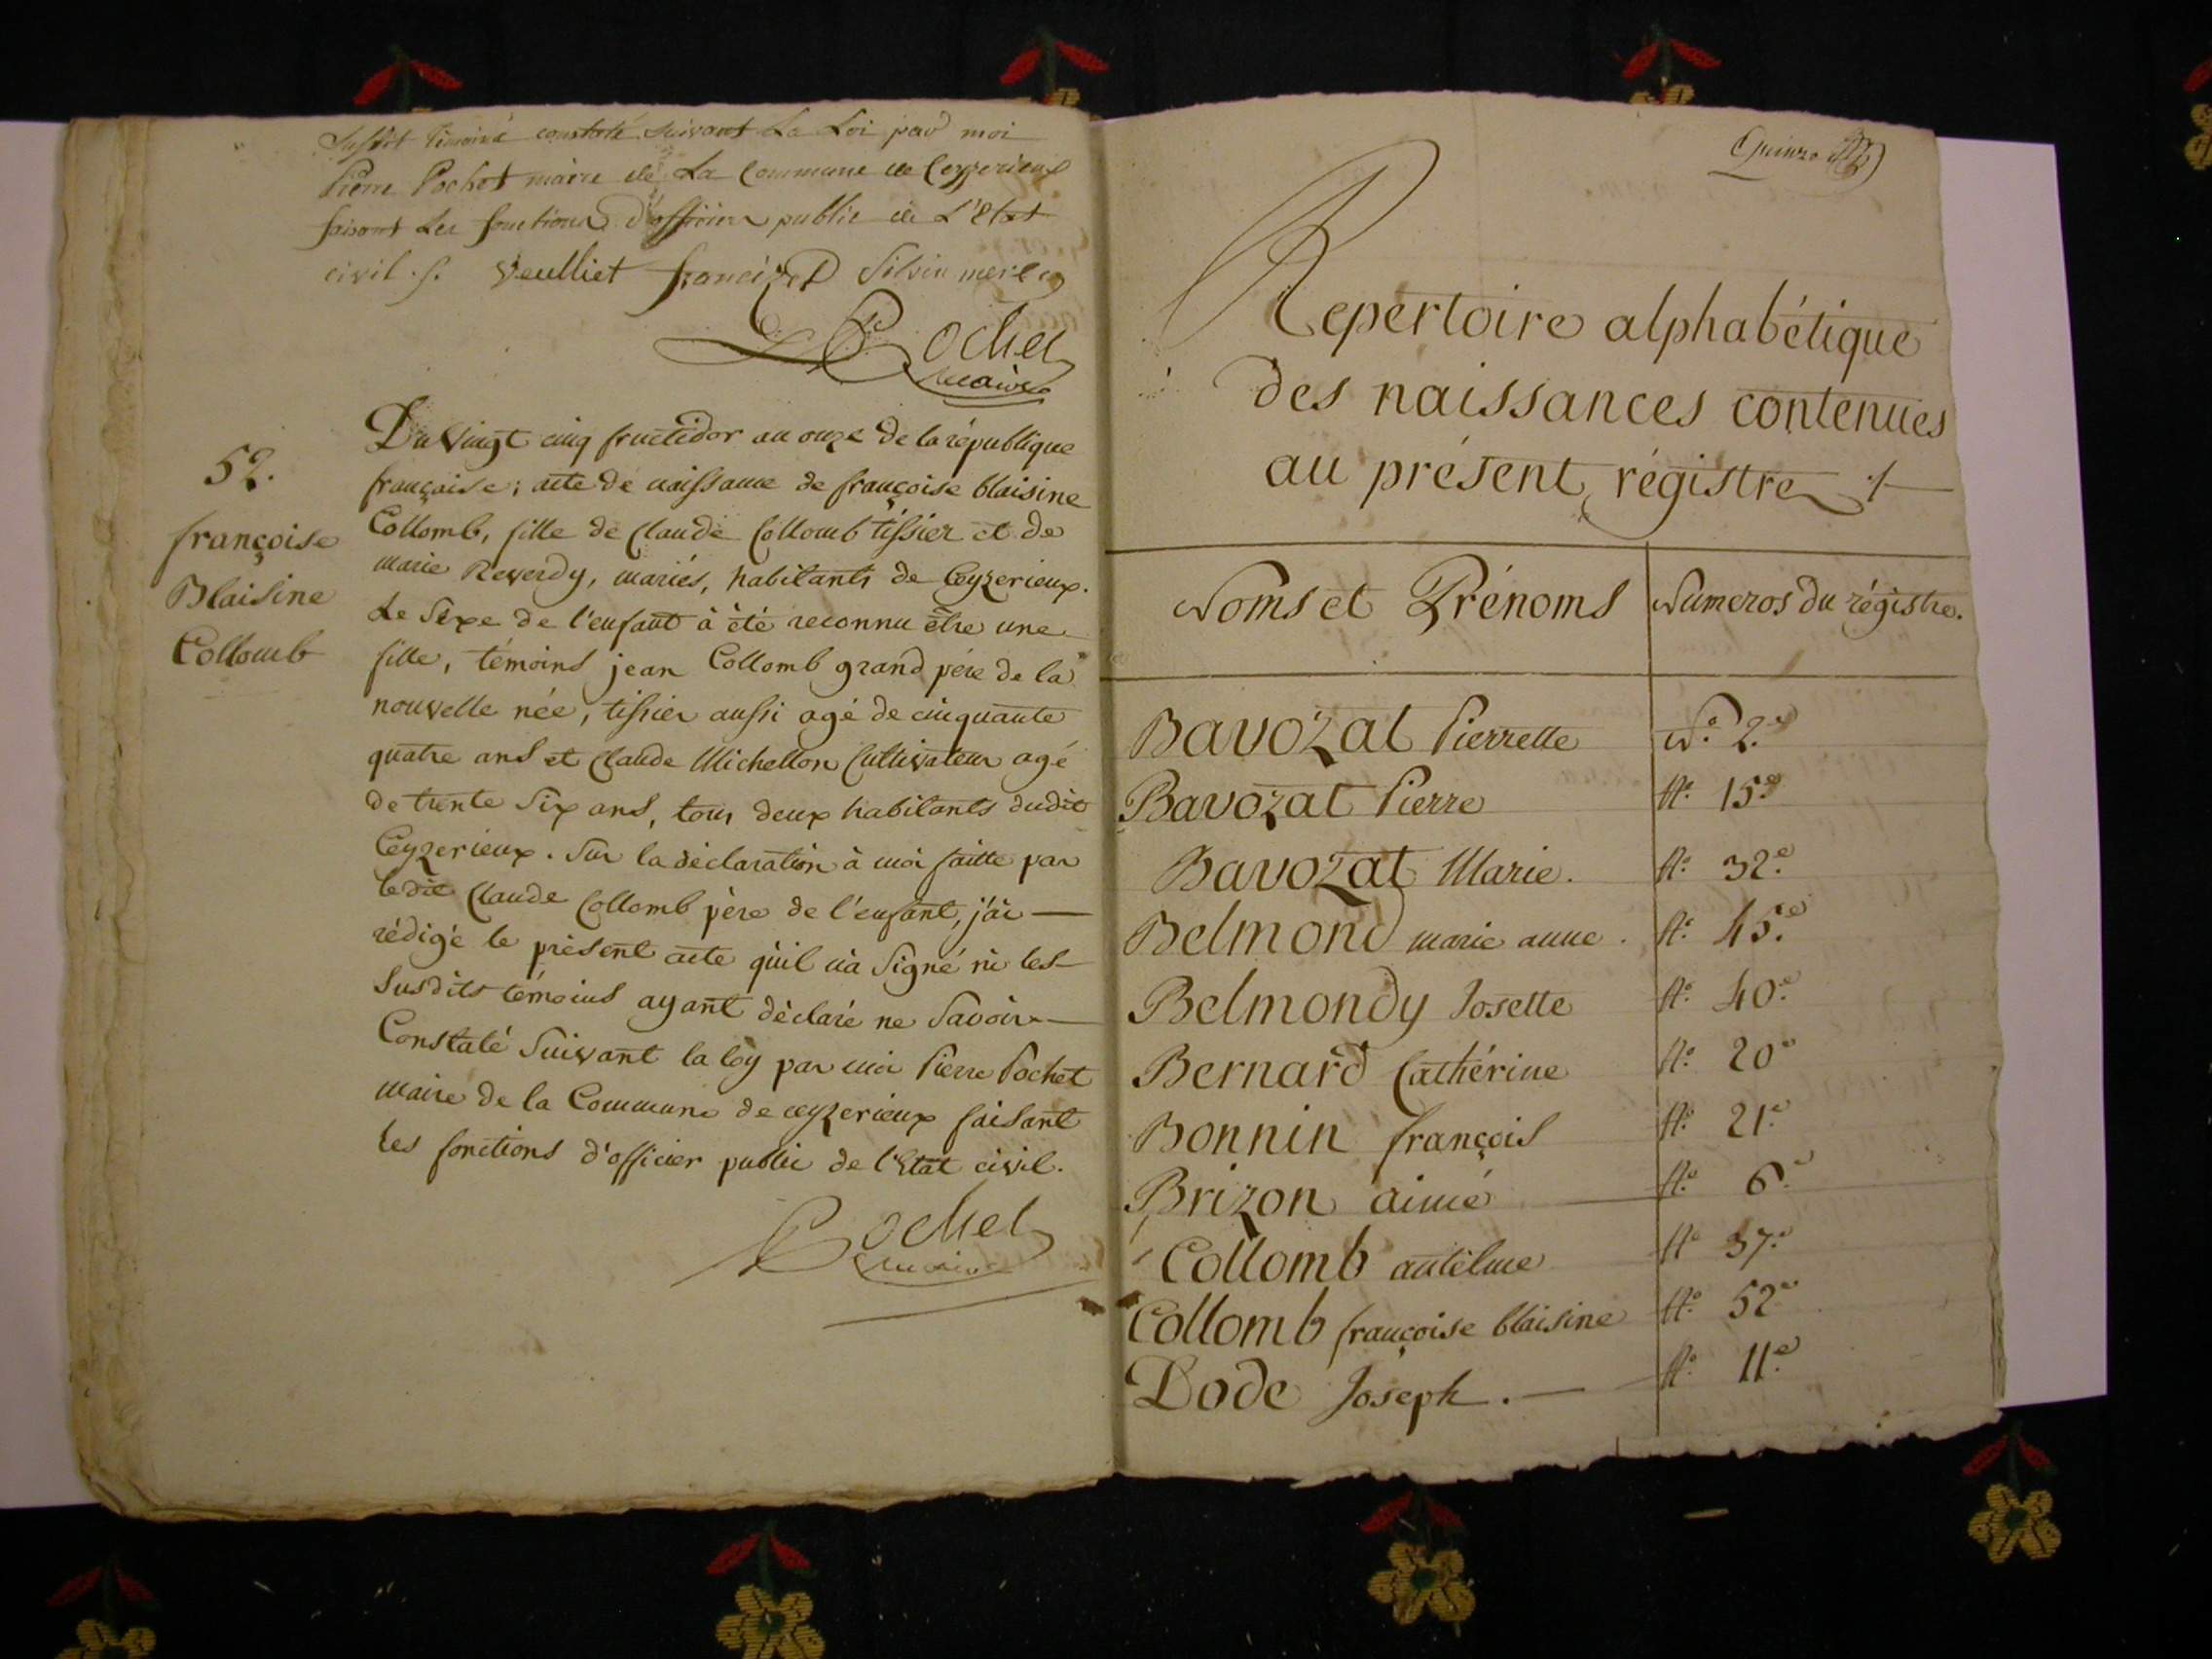 susdit témoins constaté suivant La Loi par moi
Pierre Pochet maire de La Commune de Ceyzerieux
faisant Les fonctions d'officier public de L'Etat
civil ./. Veulliet Silvin merle
Pochet
maire
52.
françoise
Blaisine
Collomb
Du Vingt cinq fructidor an onze de la république
française; acte de naissance de françoise blaisine
Collomb, fille de Claude Collomb tissier et de
marie Reverdy, mariés, habitants de Ceyzerieux.
Le Sexe de l'enfant à été reconnu être une
fille, témoins jean Collomb grand père de la
nouvelle née, tissier aussi agé de cinquante
quatre ans et Claude Michellon Cultivateur agé
de trente Six ans, tous deux habitants dudit
Ceyzerieux. Sur la déclaration à moi faitte par
ledit Claude Collomb père de l'enfant, j'ai —
rédigé le présent acte qu'il n'a Signé ni les
Susdits témoins ayant déclaré ne Savoir —
Constaté Suivant la loy par moi Pierre Pochet
maire de la Commune de ceyzerieux faisant
les fonctions d'officier public de l'Etat civil.
Pochet
maire
Quinze
Repertoire alphabétique
des naissances contenues
au présent régistre ./.
Noms et Prénoms Numeros du régistre.
Bavozat Pierrette N.° 2.e
Bavozat Pierre N.° 15.e
Bavozat Marie. N.° 32.e
Belmond marie anne. N.° 45.e
Belmondy Josette N.° 40.e
Bernard Cathérine N.° 20.e
Bonnin françois N.° 21.e
Brizon aimé N.° 6.e
Collomb antelme N.° 37.e
Collomb françoise blaisine N.° 52.e
Dode Joseph. — N.° 11.e